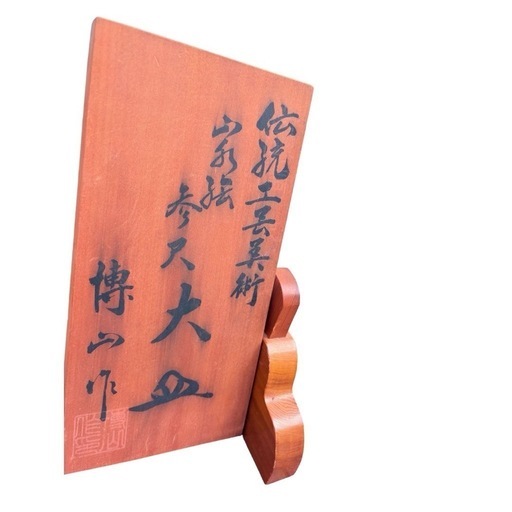 伝統工芸美術
山水絵
参尺大皿
博山作